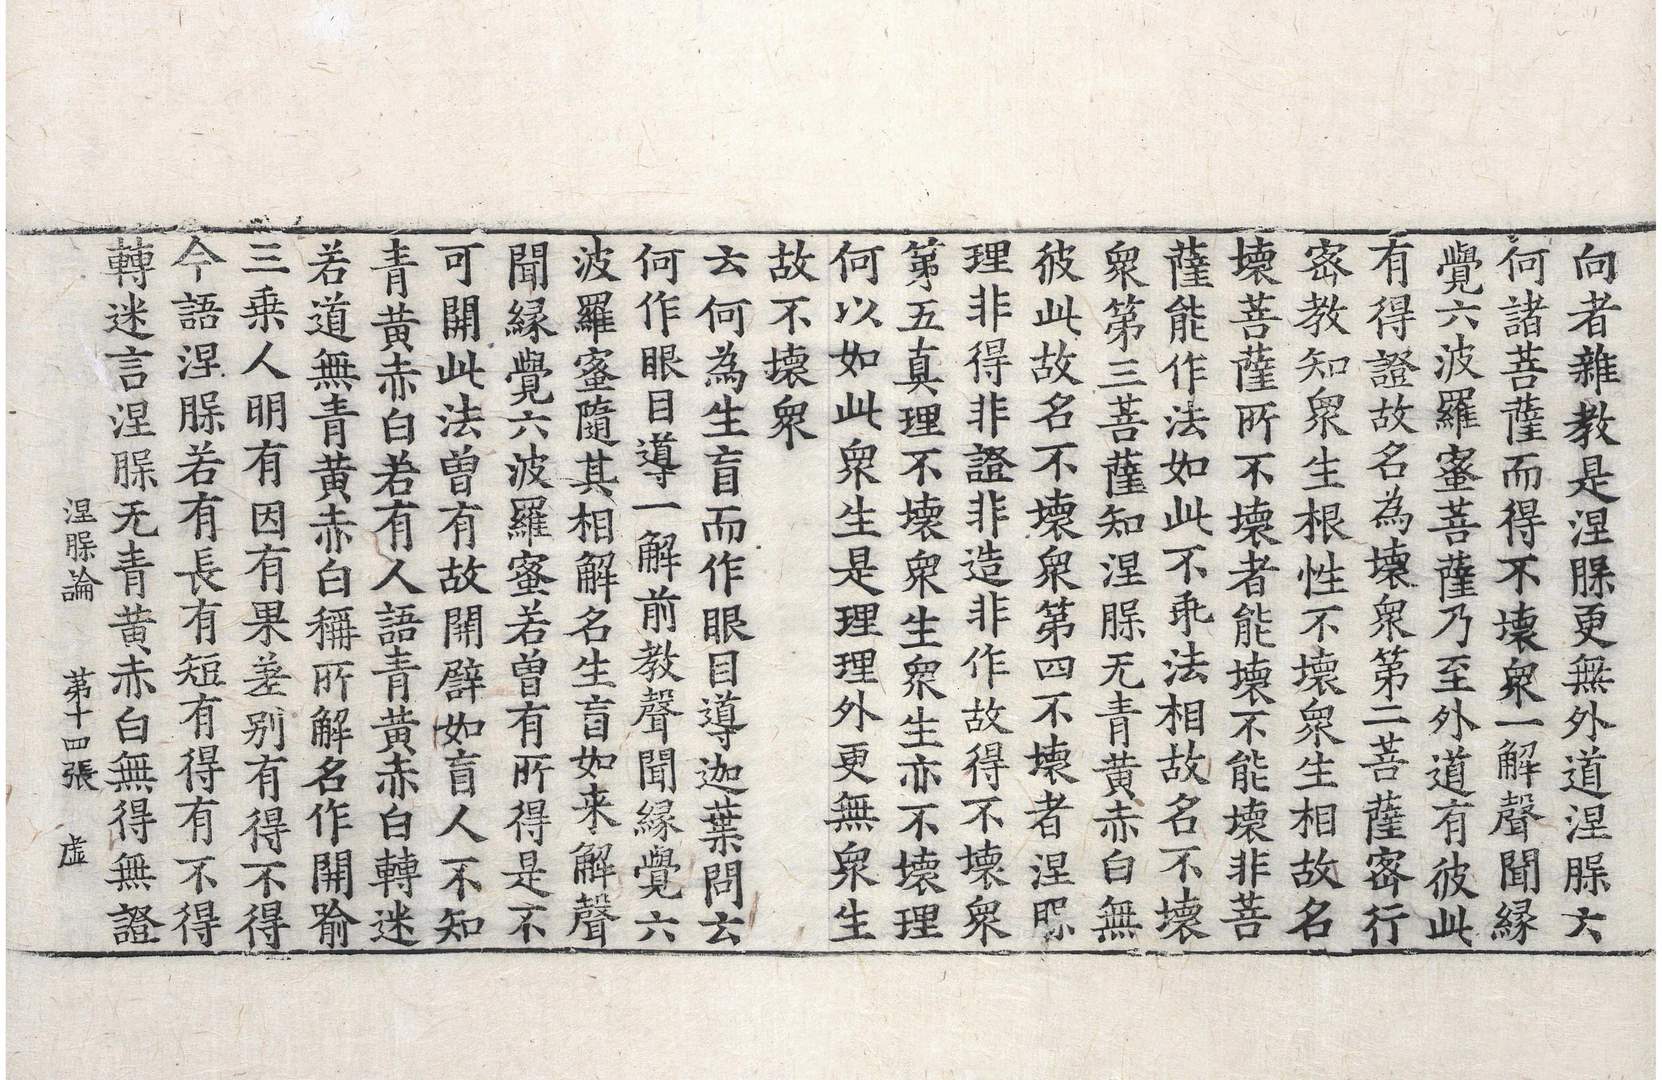 向者雜教是涅槃更無外道涅槃云
何諸菩薩而得不壞衆一解聲聞緣
覺六波羅蜜菩薩乃至外道有彼此
有得證故名為壞衆第二菩薩密行
密教知衆生根性不壞衆生相故名
壞菩薩所不壞者能壞不能壞非菩
薩能作法如此不乖法相故名不壞
衆第三菩薩知涅槃无青黃赤白無
彼此故名不壞衆第四不壞者涅槃
理非得非證非造非作故得不壞衆
第五真理不壞衆生衆生亦不壞理
何以如此衆生是理理外更無衆生
故不壞衆
云何為生盲而作眼目導迦葉問云
何作眼目導一解前教聲聞緣覺六
波羅蜜隨其相解名生盲如来解聲
聞緣覺六波羅蜜若曾有所得是不
可開此法曽有故開譬如盲人不知
青黃赤白若有人語青黃赤白轉迷
若道無青黃赤白稱所解名作開喻
三乗人明有因有果差别有得不得
今語涅槃若有長有短有得有不得
轉迷言涅槃无青黃赤白無得無證
涅槃論 第十四張 虛